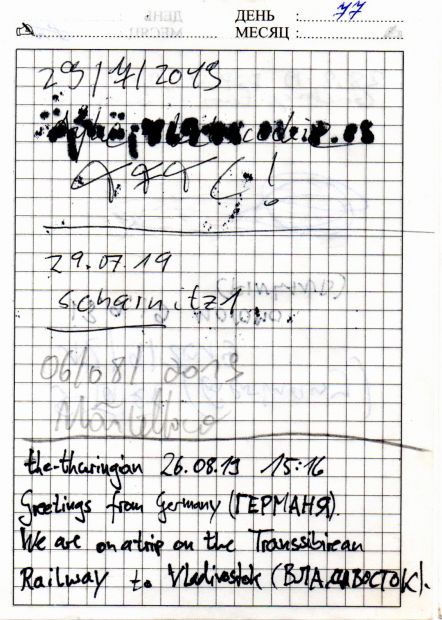 ДЕНЬ : 77
МЕСЯЦ :
29/7/2019
29.07.19
scharnitz1
06/08/2019
the-thuringian 26.08.19 15:16
Greetings from Germany (ГЕРМАНЯ).
We are on a trip on the Transsibirean
Railway to Vladivostok (ВЛАДИВОСТОК).